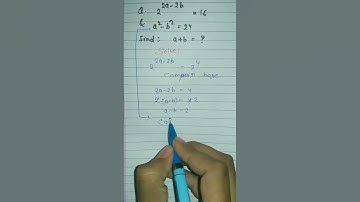 a. 2^{2a-2b} = 16
b. a² - b² = 24
find: a+b = ?
Solve:
2^{2a-2b} = 2^4
Compare base
2a-2b = 4
2(a-b) = 4 2
a-b = 2
(a